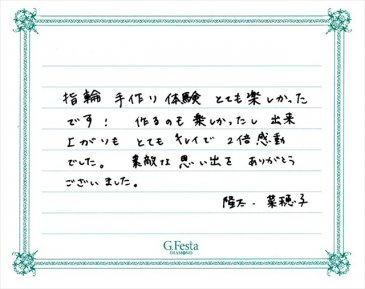 指輪 手作り 体験 とても楽しかった
です! 作るのも 楽しかったし 出来
上がりも とても キレイで 2倍 感動
でした。 素敵な 思い出を ありがとう
ございました。
隆太・菜穂子
G.Festa
DIAMOND